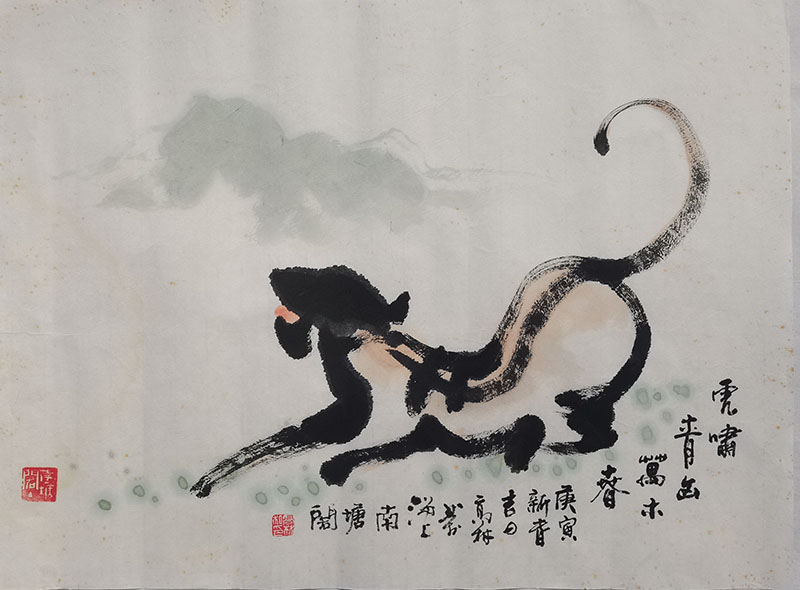 虎嘯
青山
萬木
春
庚寅
新春
吉日
上
南
塘
閣